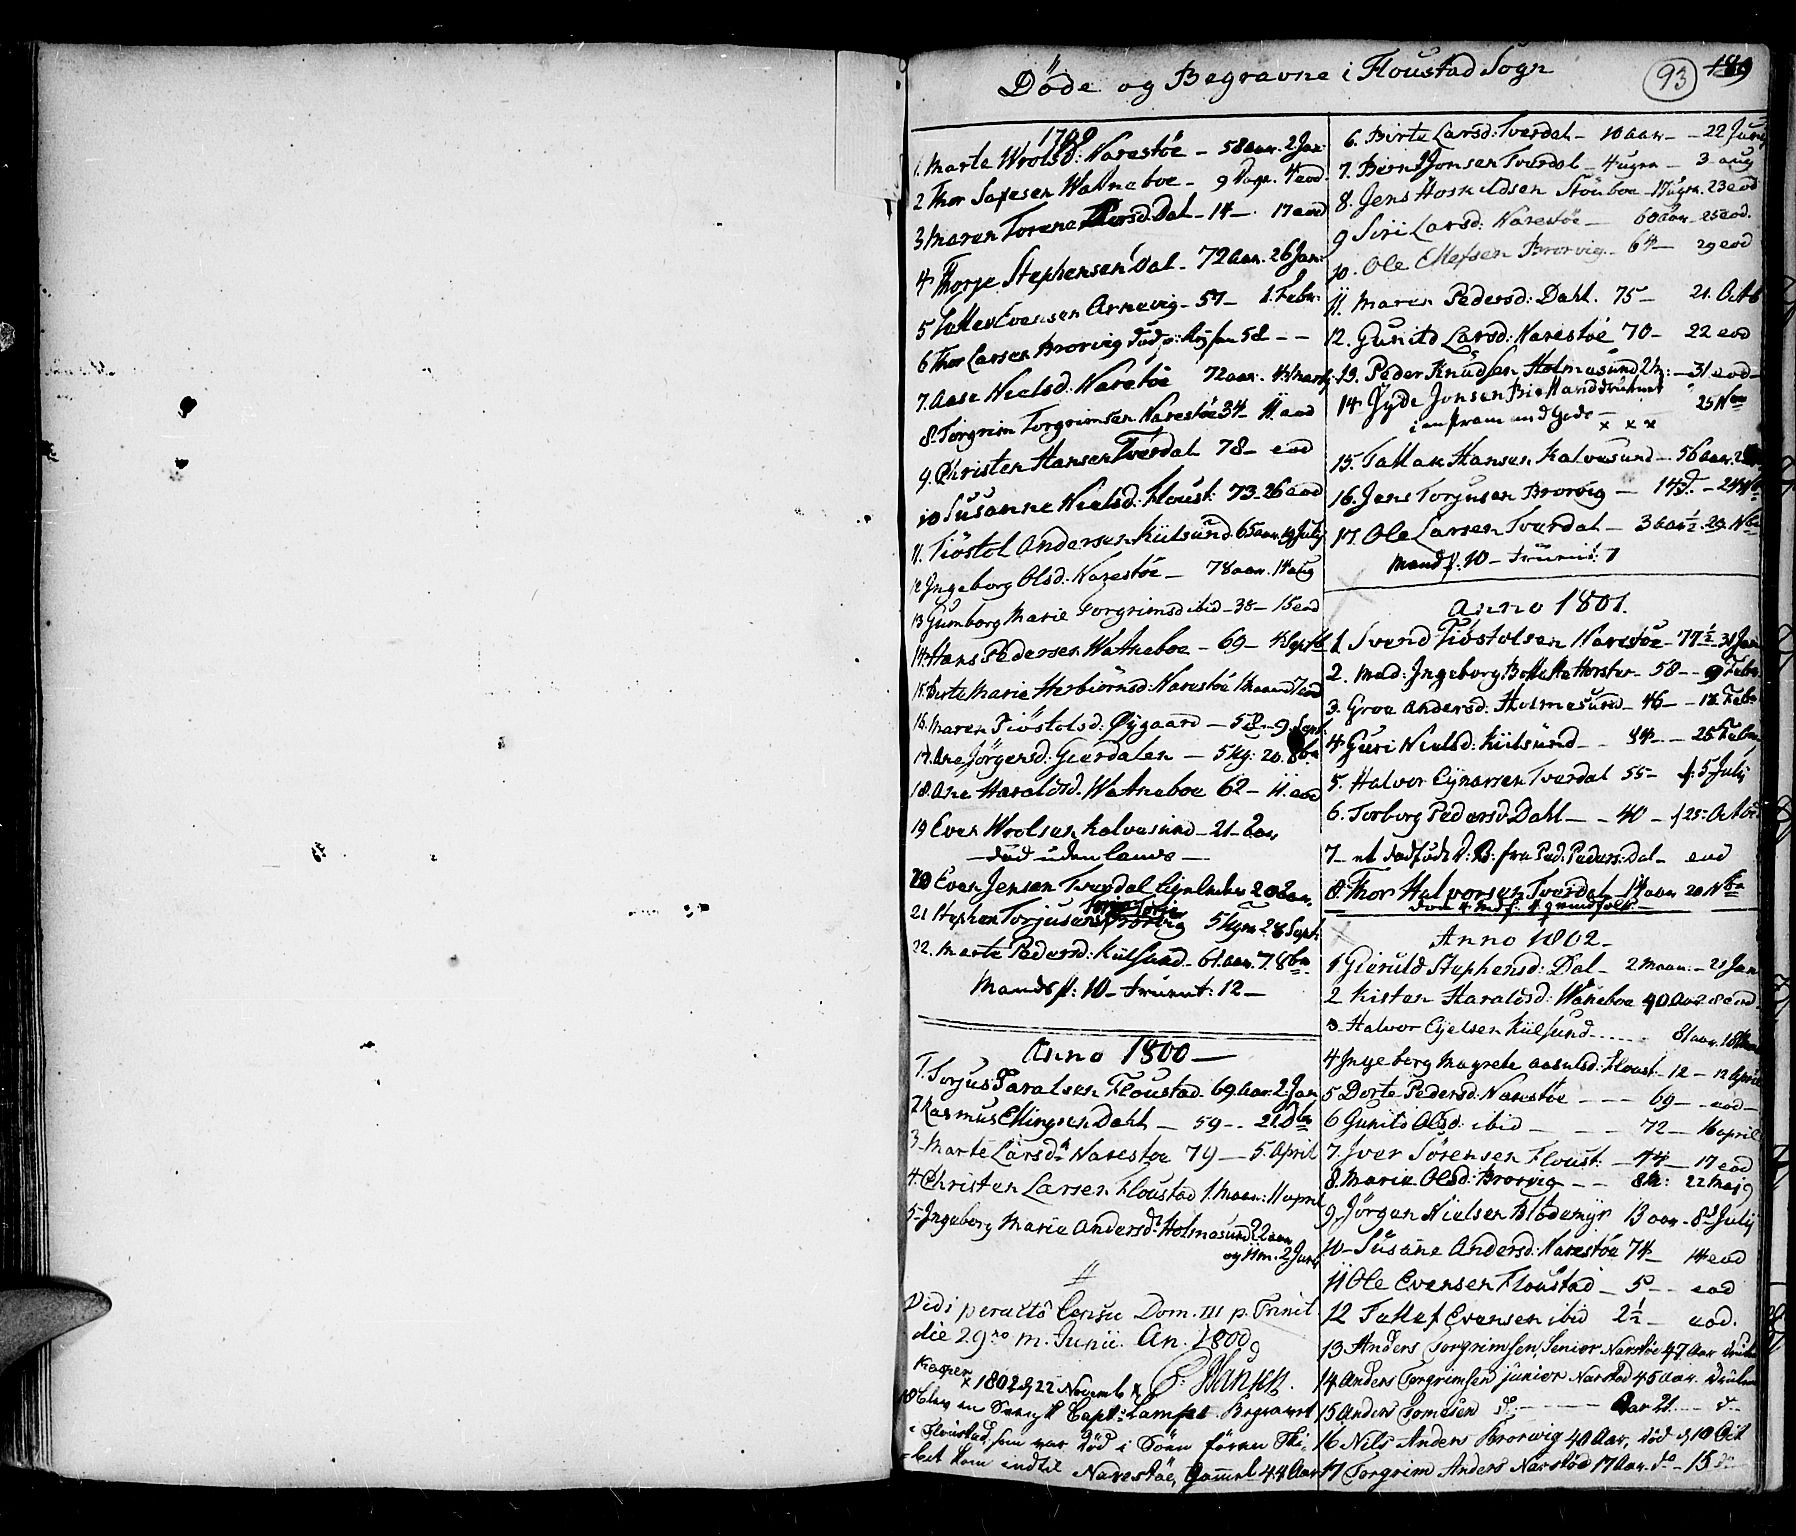 Döde og Begravne i Floustad Sogn
93
189
1799
1. Marte Wrolsd: Narestöe - 58 aar. 2 Jan:
2 Thor Watneboe - 9 Dage. 4 eod.
3 Maren Torene Dal - 14 - 17 eod
4 Thorje Stephensen Dal - 72 aar. 26 Jan:
5 Tallev Evensen Arnevig - 57 - 1. Febr:
6 Thor Larsen Brorvig 58 - -
7. Aase Nielsd: Narestöe 72 aar. 4 Marts
8. Torgrim Torgrimsen Narestöe 34 - 11. eod
9. Christen Hansen Tverdal 78 - eod
10 Susanne Nielsd: Floust: 73. 26 eod
11. Tiöstol Andersen Kiilsund 65 aar 19 July
12 Ingeborg Olsd: Narestöe - 78 aar. 14 aug
13 Gumborg Marie Torgrimsd ibid - 38 - 15 eod
14. Hans Pedersen Watneboe - 69 - 4 Septb
15. Birte Marie Herbiörnsd: Narestöe 1 Maaned 7 eod
16. Maren Tiöstolsd: Øygaard - 58 - 9. Sept:
17. Ane Jörgensd: Gierdalen - 5 Ug: 20. 8br
18. Ane Haraldsd. Watneboe 62 - 11. eod
19 Even Wrolsen Kalvesund - 21 - aar
- död uden lands -
20 Even Jensen Tverdal 20 aar.
21 Stephen Torjusen Brorvig 5 Ugr. 28 Sept:
22. Marte Pedersd: Kiilsund - 61 aar. 7. 8br
Mandk: 10 - fruent: 12 -
Anno 1800 -
1. Torjus Taralsen Floustad 69. Aar. 2. Jan
2. Rasmus Ellingsen Dahl - 59 - 21.
3. Marte Larsd: Narestøe 79 - 5. April
4. Christen Larsen Floustad 1. Maan: 11 april
5. Ingeborg Marie Andersd: Holmesund 22 aar
og 11 m. 2 Juni
Vidi peracto Censu Dom. III p. Trinit
die 29no m. Junii. An. 1800
P: Hansen.
x 1802 d 22 Novemb x
Blev en Capt: Begravet
i Floustad, som var död i Söen förend
kom indtil Narestöe, Gammel 44 Aar
6. Birte Larsd: Tverdal - 10 aar - - 22 Juny
7. Jonsen Tverdal - 4 ugrn - 3 aug
8. Jens Hoskildsen Stöleboe - 17 ugr. 23 eod
9 Siri Larsd: Narestöe - 60 aar - 25 eod.
10. Ole Ellefsen Brorvig - 64 - 29 eod
11. Maren Pedersd: Dahl. 75 - 21. Octb
12. Gunild Larsd: Narestöe 70 - 22 eod
13. Peder Knudsen Holmesund - 31 eod -
14 Jyde Jensen Bie druknet
i en pram med Gods - 25 Nov
x x x
15. Tallak Hansen Kalvesund - 56 aar.
16. Jens Torjusen Brorvig - 14 d. - 24
17. Ole Larsen Tverdal - 3 aar ½ - 29. Nbr
Mandk: 10 - fruent: 7
Anno 1801.
1 Svend Tiöstolsen Narestøe - 77 ½ - 31 Jan
2. Mad: Ingeborg Horster - 58 - - 9 Febr
3. Groe Andersd: Holmesund - 46 - - 18 Febr
4 Guri Nielsd: Kiilsund - - 84 - - 25 Febr
5. Halvor Ejnersen Tverdal 55 - 5 July
6. Torborg Pedersd: Dahl - - 40 - 25. Octob
7 - et dødfødt D: B: fra Ped. Peders: Dal - eod
8. Thor Halvorsen Tverdal 14 aar 20 Nbr
Anno 1802 -
1 Gieruld Stephensd: Dal - 2 Maan: - 21 Jan
2 Kisten Haraldsd: Watneboe 40 Aar 28 eod
3. Halvor Ejelsen Kiilsund - - - - 81 aar.
4 Ingeborg Magrete Aasulsd: Floust - 12 - 12 April
5 Dorte Pedersd: Narestöe - - - 69 - - eod -
6 Gunild Olsd: ibid - - - - 72 - 16 april
7. Iver Sörensen Floust: - 44 - 17 eod
8. Marie Olsd: Brorvig - - 22 Maj
9 Jörgen Nielsen Blödemyr 13 aar. 8d July
10 - Susane Andersd: Narestöe 74 - 14 eod
11 Ole Evensen Floustad - 5 - - eod
12 Tallef Evensen ibid 2½ - eod.
13 Anders Torgrimsen, Senior Narstöe 47 Aar
14 Anders Torgrimsend junior Narstøe 45 aar.
15 Anders Tomesen d: - - - - Aar 21 - - - d -
16 Nils Anders Brorwig 40 Aar, død d 10 Oct
17 Torgrim Anders Narstøe 17 Aar. do - 15 do